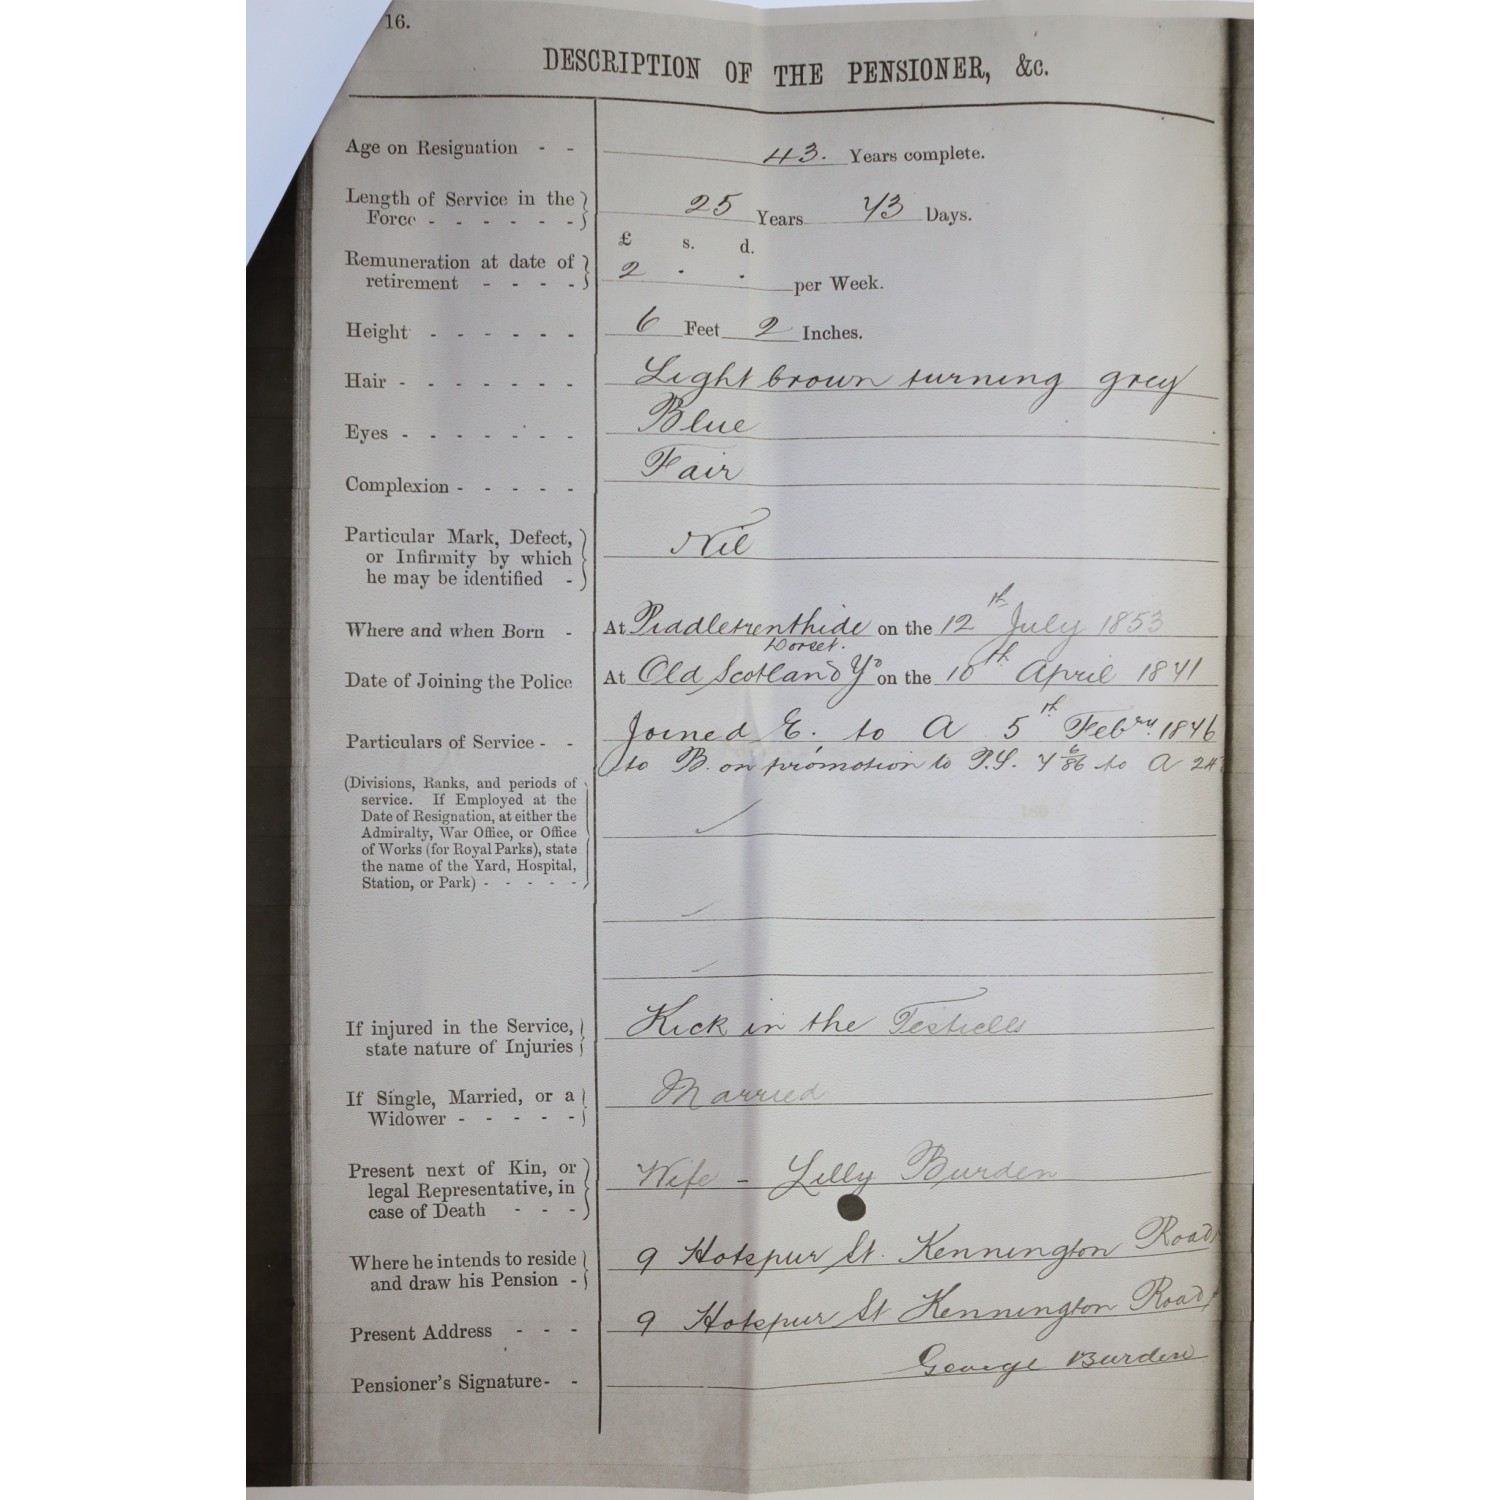 16.
DESCRIPTION OF THE PENSIONER, &c.
Age on Resignation - - 43. Years complete.
Length of Service in the
Force - - - - - - 25 Years 73 Days.
£ s. d.
Remuneration at date of
retirement - - - - 2 . . per Week.
Height - - - - - - 6 Feet 2 Inches.
Hair - - - - - - - Light brown turning grey
Eyes - - - - - - - Blue
Complexion - - - - - Fair
Particular Mark, Defect,
or Infirmity by which
he may be identified - Nil
Where and when Born - At Piddletrenthide on the 12th July 1853
Dorset.
Date of Joining the Police At Old Scotland Yd on the 10th April 1871
Particulars of Service - - Joined E. to A 5th Febry. 1876
to B. on promotion to P.S. 7 6/86 to A 24
(Divisions, Ranks, and periods of
service. If Employed at the
Date of Resignation, at either the
Admiralty, War Office, or Office
of Works (for Royal Parks), state
the name of the Yard, Hospital,
Station, or Park) - - - - -
If injured in the Service,
state nature of Injuries Kick in the Testicles
If Single, Married, or a
Widower - - - - - Married
Present next of Kin, or
legal Representative, in
case of Death - - - Wife - Lilly Burden
Where he intends to reside
and draw his Pension - 9 Hotspur St. Kennington Road
Present Address - - - 9 Hotspur St Kennington Road
Pensioner's Signature - - George Burden